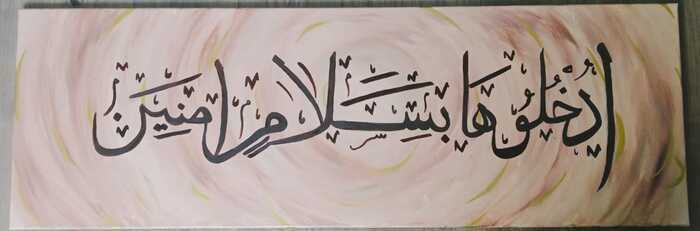 اُدْخُلُوهَا بِسَلَامٍ اٰمِنِينَ